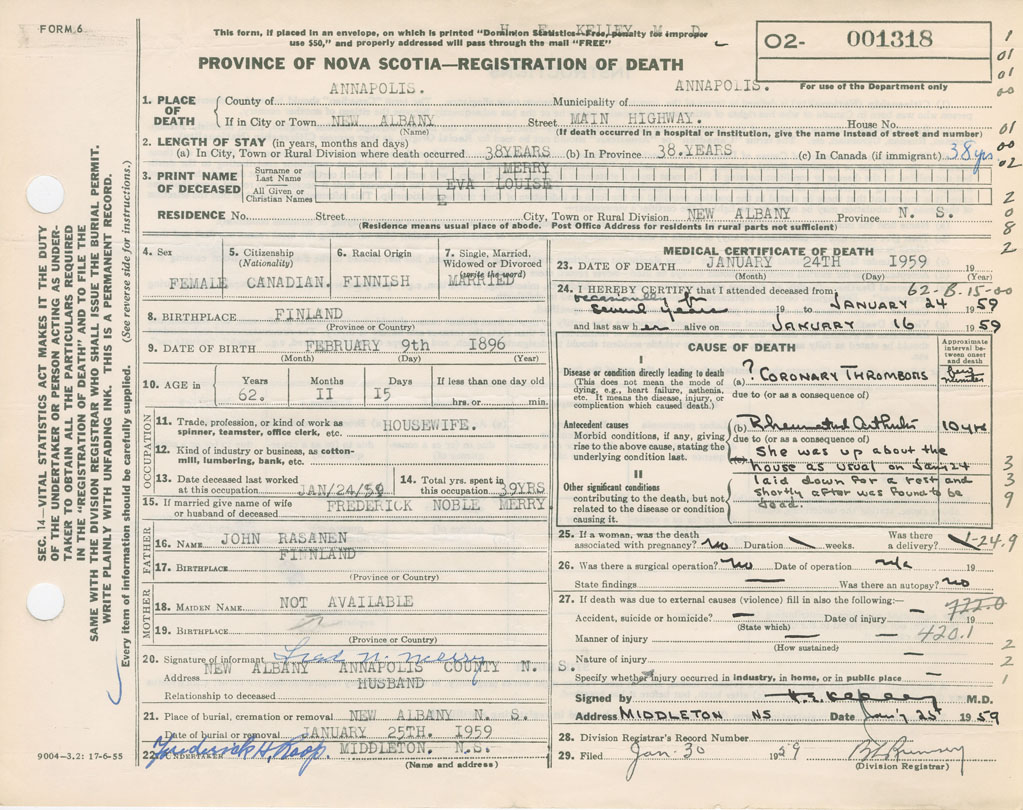 FORM 6
H. E. KELLEY M. D.
This form, if placed in an envelope, on which is printed "Dominion Statistics—Free, penalty for improper
use $50," and properly addressed will pass through the mail "FREE"
O2- 001318
For use of the Department only
PROVINCE OF NOVA SCOTIA—REGISTRATION OF DEATH
1. PLACE OF DEATH
County of ANNAPOLIS. Municipality of ANNAPOLIS.
If in City or Town NEW ALBANY Street MAIN HIGHWAY. House No.
(Name) (If death occurred in a hospital or institution, give the name instead of street and number)
2. LENGTH OF STAY (in years, months and days)
(a) In City, Town or Rural Division where death occurred 38YEARS (b) In Province 38.YEARS (c) In Canada (if immigrant) 38 yrs
3. PRINT NAME OF DECEASED
Surname or Last Name MERRY
All Given or Christian Names EVA LOUISE
E
RESIDENCE No. Street City, Town or Rural Division NEW ALBANY Province N. S.
(Residence means usual place of abode. Post Office Address for residents in rural parts not sufficient)
4. Sex FEMALE
5. Citizenship (Nationality) CANADIAN.
6. Racial Origin FINNISH
7. Single, Married, Widowed or Divorced (write the word) MARRIED
8. BIRTHPLACE FINLAND
(Province or Country)
9. DATE OF BIRTH FEBRUARY 9th 1896
(Month) (Day) (Year)
10. AGE in Years 62. Months II Days I5 If less than one day old hrs. or min.
OCCUPATION
11. Trade, profession, or kind of work as spinner, teamster, office clerk, etc. HOUSEWIFE.
12. Kind of industry or business, as cotton-mill, lumbering, bank, etc.
13. Date deceased last worked at this occupation JAN/24/59
14. Total yrs. spent in this occupation 39YRS
15. If married give name of wife or husband of deceased FREDERICK NOBLE MERRY
FATHER
16. NAME JOHN RASANEN
17. BIRTHPLACE FINNLAND
(Province or Country)
MOTHER
18. MAIDEN NAME NOT AVAILABLE
19. BIRTHPLACE
(Province or Country)
20. Signature of informant Fred N. Merry
Address NEW ALBANY ANNAPOLIS COUNTY N. S.
Relationship to deceased HUSBAND
21. Place of burial, cremation or removal NEW ALBANY N. S.
Date of burial or removal JANUARY 25TH. 1959
22. UNDERTAKER Frederick H. Roop. MIDDLETON. N.S.
(Name and address)
MEDICAL CERTIFICATE OF DEATH
23. DATE OF DEATH JANUARY 24TH 1959 19
(Month) (Day) (Year)
24. I HEREBY CERTIFY that I attended deceased from: 62-B-15-00
occasionally for several years 19 to JANUARY 24 1959
and last saw her alive on JANUARY 16 1959
CAUSE OF DEATH
Approximate interval between onset and death
I
Disease or condition directly leading to death
(This does not mean the mode of dying, e.g., heart failure, asthenia, etc. It means the disease, injury, or complication which caused death.)
(a) ? CORONARY THROMBOSIS few minutes
due to (or as a consequence of)
Antecedent causes
Morbid conditions, if any, giving rise to the above cause, stating the underlying condition last.
(b) Rheumatoid Arthritis 10 yrs
due to (or as a consequence of)
(c)
She was up about the
house as usual on Jan 24
laid down for a rest and
shortly after was found to be
dead.
II
Other significant conditions
contributing to the death, but not related to the disease or condition causing it.
25. If a woman, was the death associated with pregnancy? no Duration weeks. Was there a delivery?
1-24.9
26. Was there a surgical operation? no Date of operation n/a 19
State findings — Was there an autopsy? no
27. If death was due to external causes (violence) fill in also the following:—
722.0
Accident, suicide or homicide? — Date of injury — 19
(State which)
420.1
Manner of injury — —
(How sustained)
Nature of injury —
Specify whether injury occurred in industry, in home, or in public place —
Signed by H. E. Kelley M.D.
Address MIDDLETON NS Date Jan'y 25th 1959
28. Division Registrar's Record Number
29. Filed Jan. 30 1959
(Division Registrar)
SEC. 14—VITAL STATISTICS ACT MAKES IT THE DUTY
OF THE UNDERTAKER OR PERSON ACTING AS UNDER-
TAKER TO OBTAIN ALL THE PARTICULARS REQUIRED
IN THE "REGISTRATION OF DEATH" AND TO FILE THE
SAME WITH THE DIVISION REGISTRAR WHO SHALL ISSUE THE BURIAL PERMIT.
WRITE PLAINLY WITH UNFADING INK. THIS IS A PERMANENT RECORD.
Every item of information should be carefully supplied. (See reverse side for instructions.)
9004—3.2: 17-6-55
1
01
01
00
01
00
02
2
0
8
2
3
3
9
2
2
1